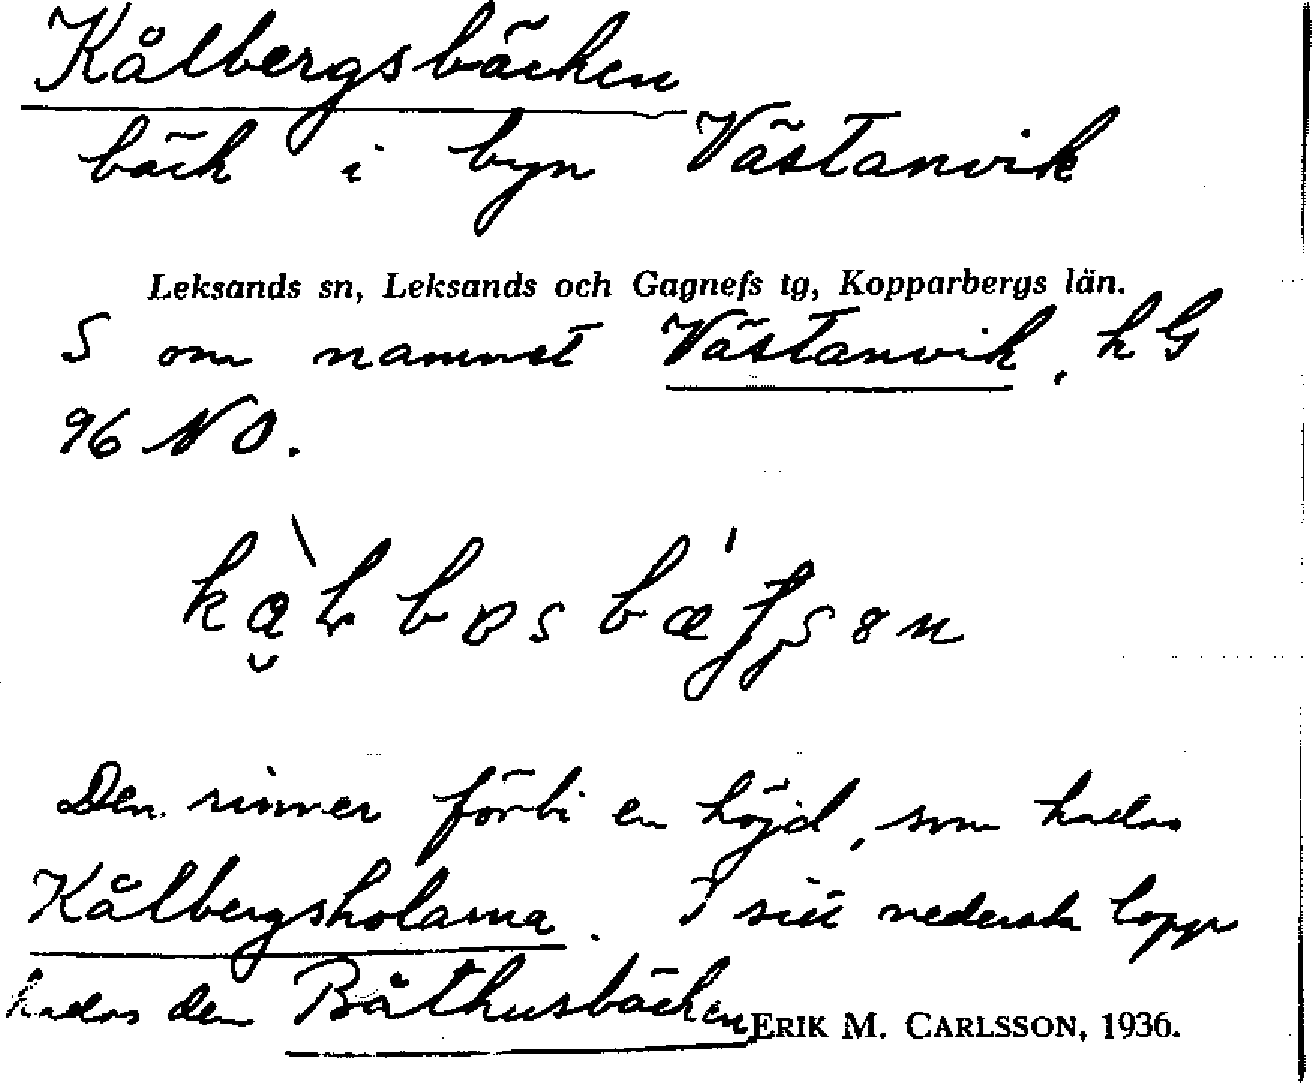 Kålbergsbäcken
bäck i byn Västanvik
Leksands sn, Leksands och Gagnefs tg, Kopparbergs län.
S om namnet Västanvik, hG
96 NO.
Den rinner förbi en höjd, som kallas
Kålbergskolarna. I sitt nedersta lopp
kallas den Båthusbäcken
ERIK M. CARLSSON, 1936.